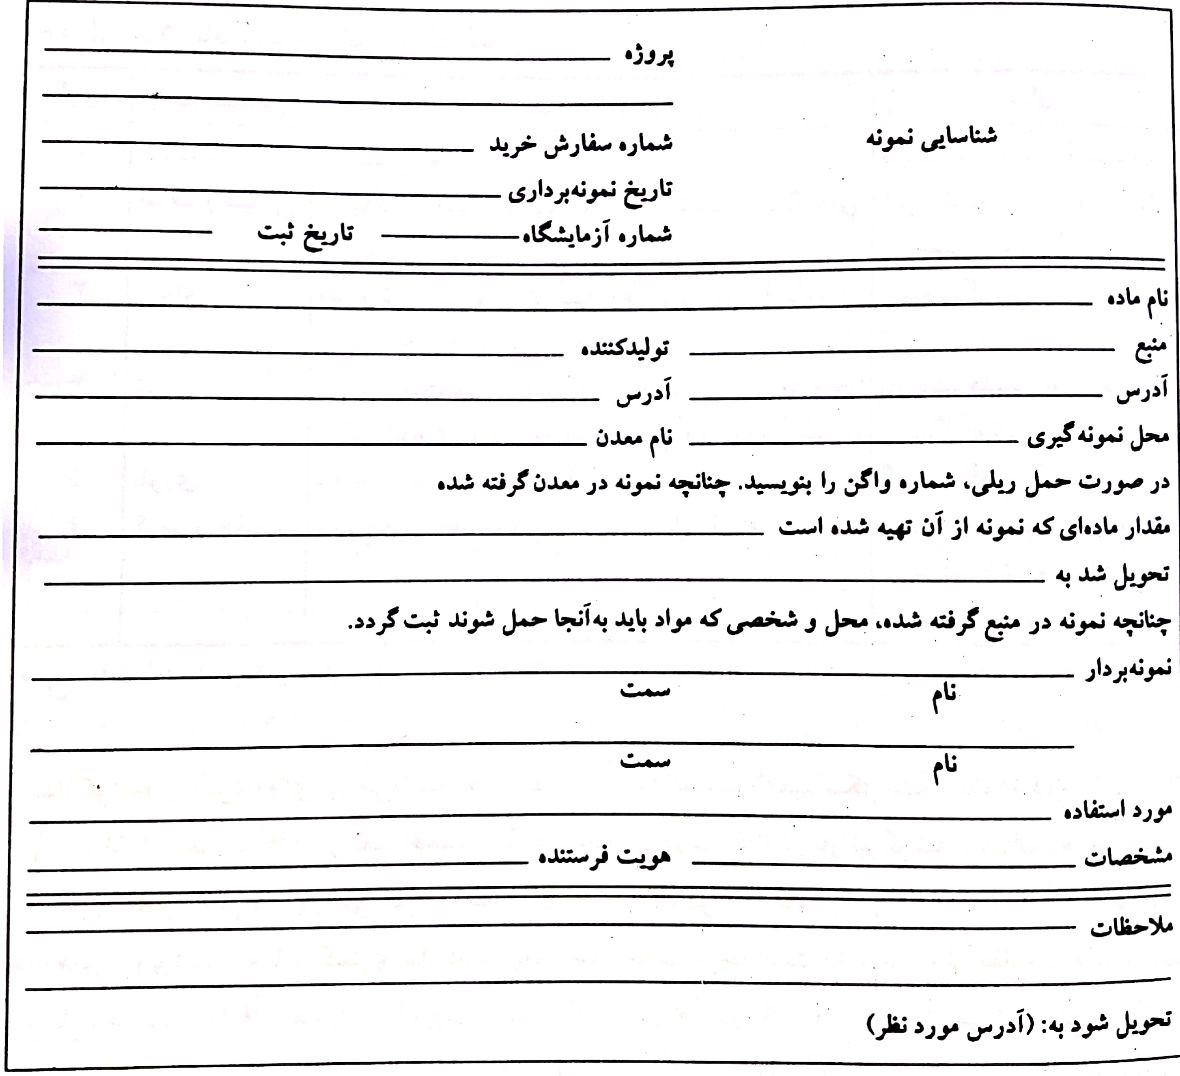 پروژه
شناسایی نمونه
شماره سفارش خرید
تاریخ نمونه‌برداری
شماره آزمایشگاه تاریخ ثبت
نام ماده
منبع تولیدکننده
آدرس آدرس
محل نمونه‌گیری نام معدن
در صورت حمل ریلی، شماره واگن را بنویسید. چنانچه نمونه در معدن گرفته شده
مقدار ماده‌ای که نمونه از آن تهیه شده است
تحویل شد به
چنانچه نمونه در منبع گرفته شده، محل و شخصی که مواد باید به‌آنجا حمل شوند ثبت گردد.
نمونه‌بردار
نام سمت
نام سمت
مورد استفاده
مشخصات هویت فرستنده
ملاحظات
تحویل شود به: (آدرس مورد نظر)